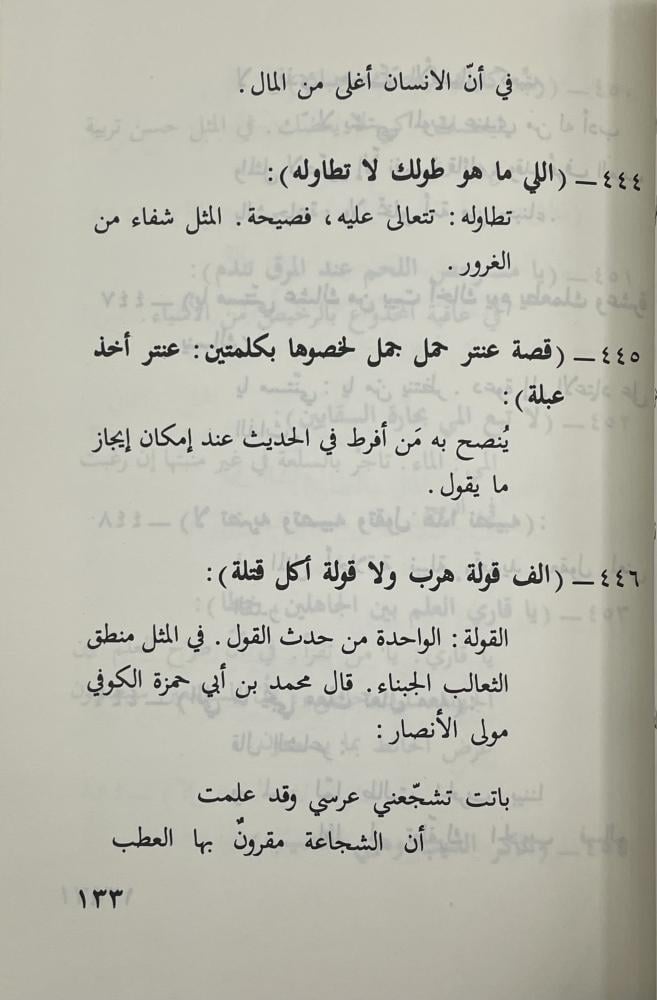 في أنّ الانسان أغلى من المال .
٤٤٤ — (اللي ما هو طولك لا تطاوله) :
تطاوله : تتعالى عليه ، فصيحة . المثل شفاء من
الغرور .
٤٤٥ — (قصة عنتر حمل جمل لخصوها بكلمتين : عنتر أخذ
عبلة) :
يُنصح به مَن أفرط في الحديث عند إمكان إيجاز
ما يقول .
٤٤٦ — (الف قولة هرب ولا قولة أكل قتلة) :
القولة : الواحدة من حدث القول . في المثل منطق
الثعالب الجبناء . قال محمد بن أبي حمزة الكوفي
مولى الأنصار :
باتت تشجّعني عرسي وقد علمت
أن الشجاعة مقرونٌ بها العطب
١٣٣